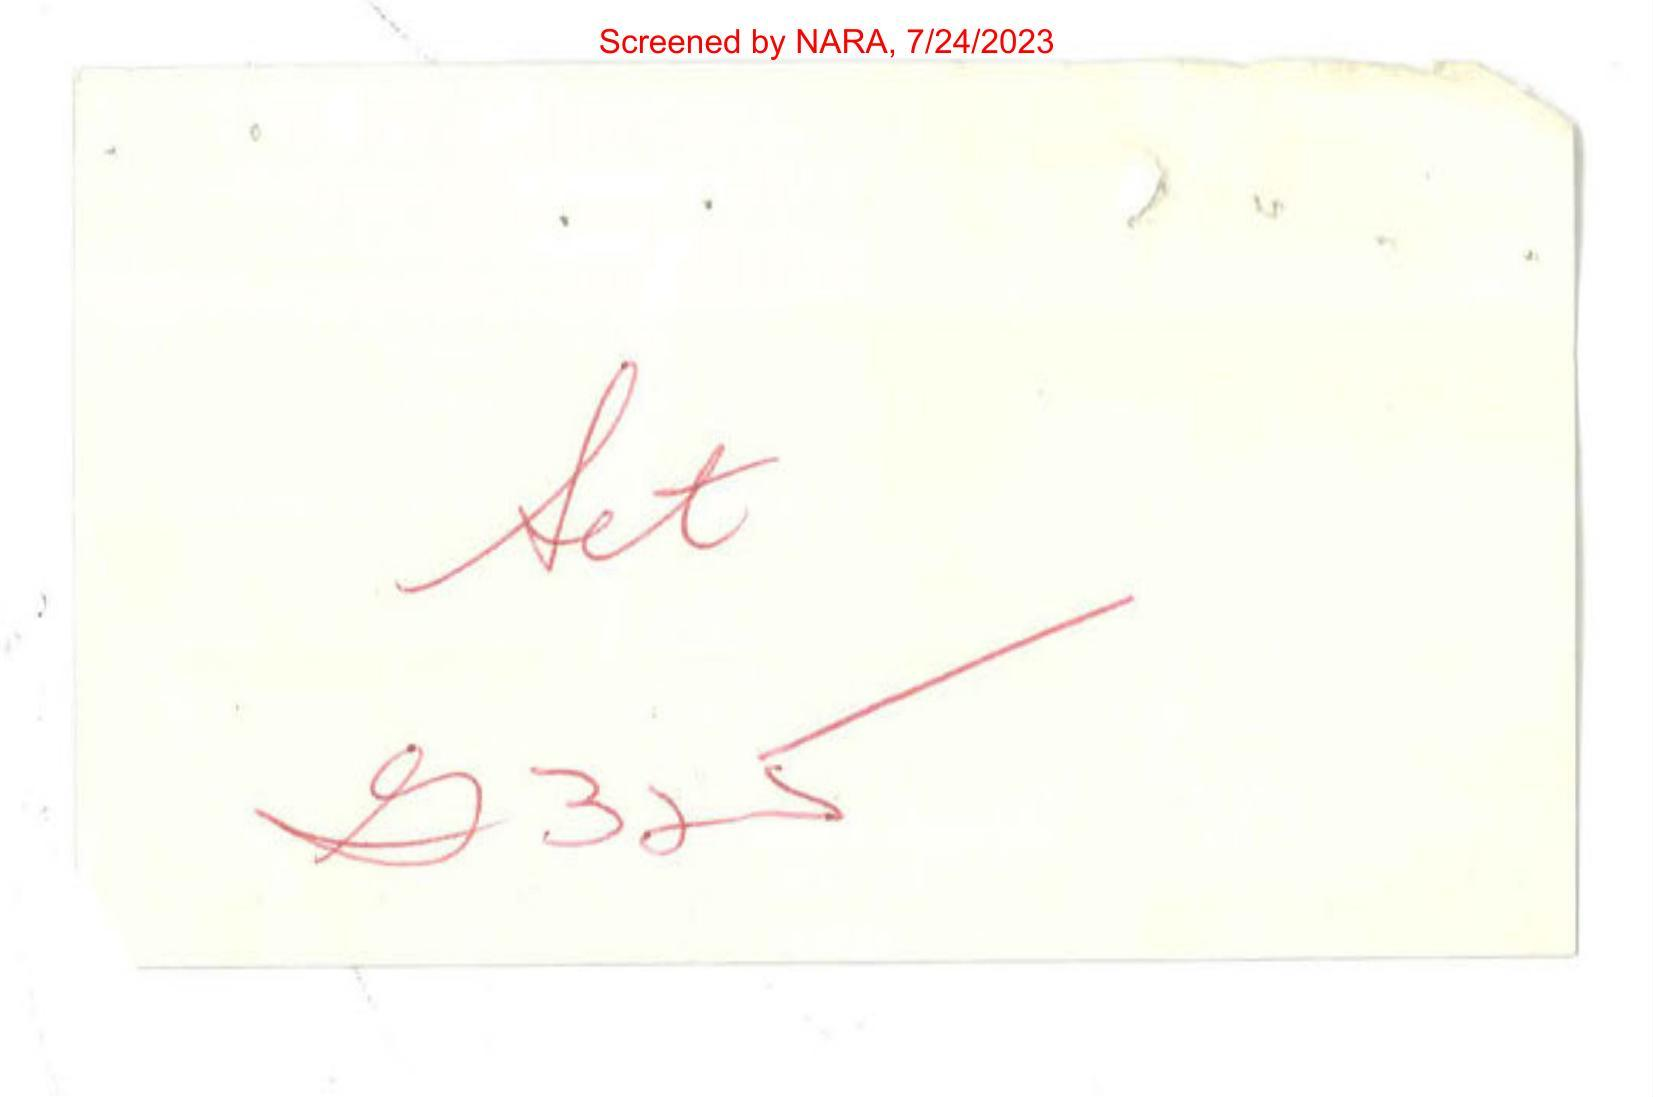 Screened by NARA, 7/24/2023
Set
G325